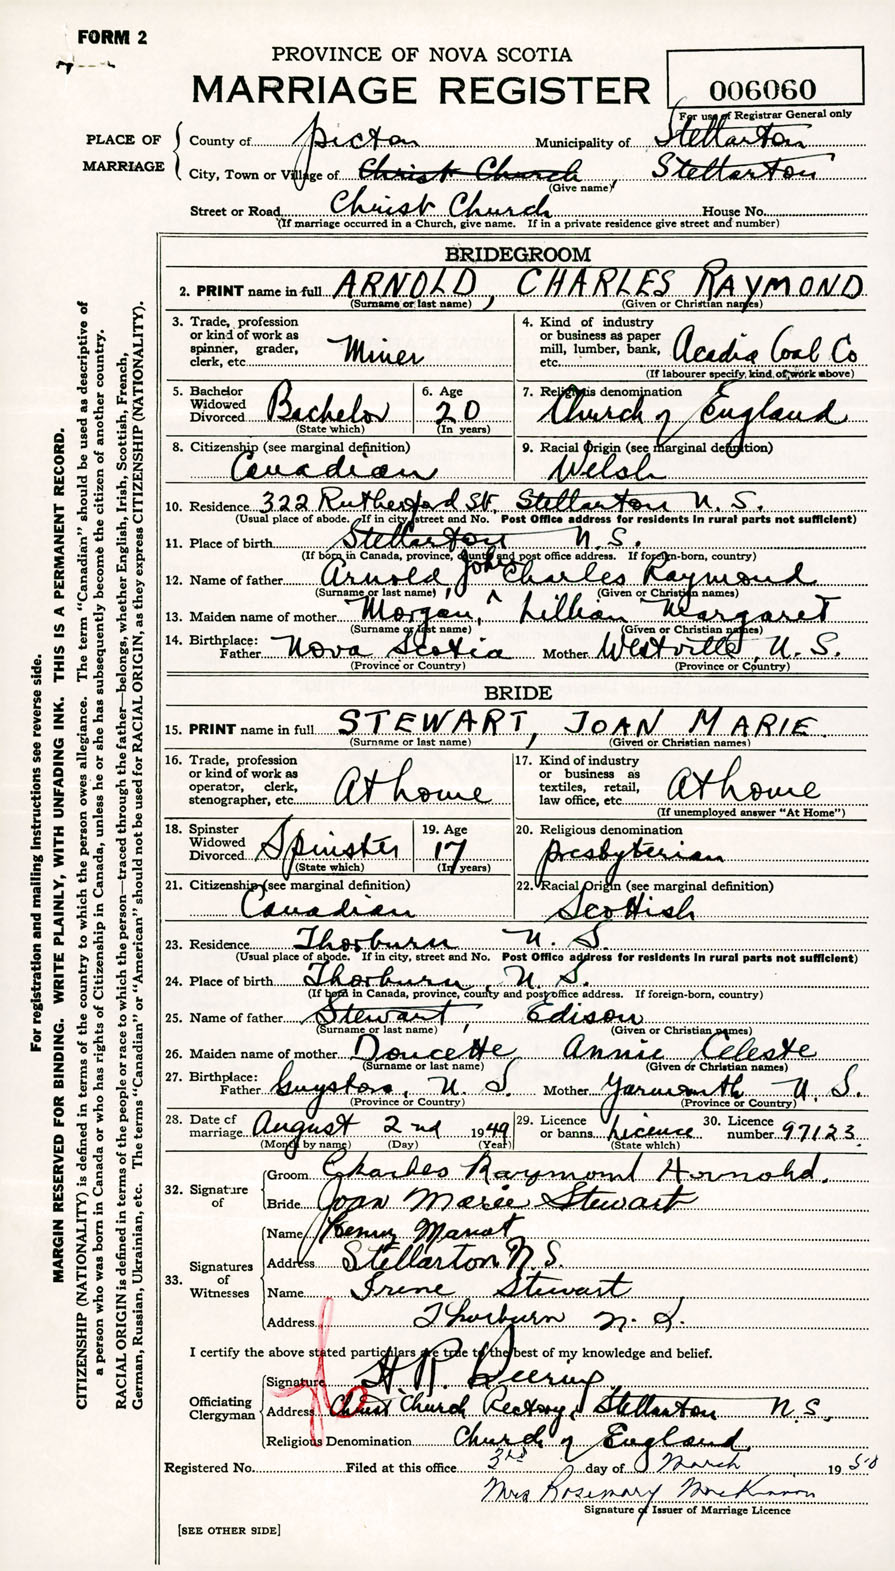 FORM 2
PROVINCE OF NOVA SCOTIA
MARRIAGE REGISTER
006060
For use of Registrar General only
PLACE OF MARRIAGE
County of Pictou Municipality of Stellarton
City, Town or Village of Christ Church, Stellarton
(Give name)
Street or Road Christ Church House No.
(If marriage occurred in a Church, give name. If in a private residence give street and number)
BRIDEGROOM
2. PRINT name in full ARNOLD, CHARLES RAYMOND
(Surname or last name) (Given or Christian names)
3. Trade, profession or kind of work as spinner, grader, clerk, etc. Miner
4. Kind of industry or business as paper mill, lumber, bank, etc. Acadia Coal Co
(If labourer specify, kind of work above)
5. Bachelor Widowed Divorced Bachelor
(State which)
6. Age 20
(In years)
7. Religious denomination Church of England
8. Citizenship (see marginal definition) Canadian
9. Racial Origin (see marginal definition) Welsh
10. Residence 322 Rutherford St. Stellarton N.S.
(Usual place of abode. If in city, street and No. Post Office address for residents in rural parts not sufficient)
11. Place of birth Stellarton N.S.
(If born in Canada, province, county and post office address. If foreign-born, country)
12. Name of father Arnold, John Charles Raymond
(Surname or last name) (Given or Christian names)
13. Maiden name of mother Morgan, Lillian Margaret
(Surname or last name) (Given or Christian names)
14. Birthplace: Father Nova Scotia Mother Westville, N.S.
(Province or Country) (Province or Country)
BRIDE
15. PRINT name in full STEWART, JOAN MARIE
(Surname or last name) (Given or Christian names)
16. Trade, profession or kind of work as operator, clerk, stenographer, etc. At home
17. Kind of industry or business as textiles, retail, law office, etc. At home
(If unemployed answer "At Home")
18. Spinster Widowed Divorced Spinster
(State which)
19. Age 17
(In years)
20. Religious denomination Presbyterian
21. Citizenship (see marginal definition) Canadian
22. Racial Origin (see marginal definition) Scottish
23. Residence Thorburn N.S.
(Usual place of abode. If in city, street and No. Post Office address for residents in rural parts not sufficient)
24. Place of birth Thorburn, N.S.
(If born in Canada, province, county and post office address. If foreign-born, country)
25. Name of father Stewart, Edison
(Surname or last name) (Given or Christian names)
26. Maiden name of mother Doucette Annie Celeste
(Surname or last name) (Given or Christian names)
27. Birthplace: Father Guysboro, N.S. Mother Yarmouth N.S.
(Province or Country) (Province or Country)
28. Date of marriage August 2nd 1949
(Month by name) (Day) (Year)
29. Licence or banns Licence
(State which)
30. Licence number 97123
32. Signature of
Groom Charles Raymond Arnold.
Bride Joan Marie Stewart
33. Signatures of Witnesses
Name Henry
Address Stellarton N.S.
Name Irene Stewart
Address Thorburn N.S.
I certify the above stated particulars are true to the best of my knowledge and belief.
Officiating Clergyman
Signature H. R. Deering
Address Christ Church Rectory, Stellarton N.S.
Religious Denomination Church of England
Registered No. Filed at this office 3rd day of March 1950
Mrs Rosemary MacKinnon
Signature of Issuer of Marriage Licence
[SEE OTHER SIDE]
For registration and mailing instructions see reverse side.
MARGIN RESERVED FOR BINDING. WRITE PLAINLY, WITH UNFADING INK. THIS IS A PERMANENT RECORD.
CITIZENSHIP (NATIONALITY) is defined in terms of the country to which the person owes allegiance. The term "Canadian" should be used as descriptive of
a person who was born in Canada or who has rights of Citizenship in Canada, unless he or she has subsequently become the citizen of another country.
RACIAL ORIGIN is defined in terms of the people or race to which the person—traced through the father—belongs, whether English, Irish, Scottish, French,
German, Russian, Ukrainian, etc. The terms "Canadian" or "American" should not be used for RACIAL ORIGIN, as they express CITIZENSHIP (NATIONALITY).